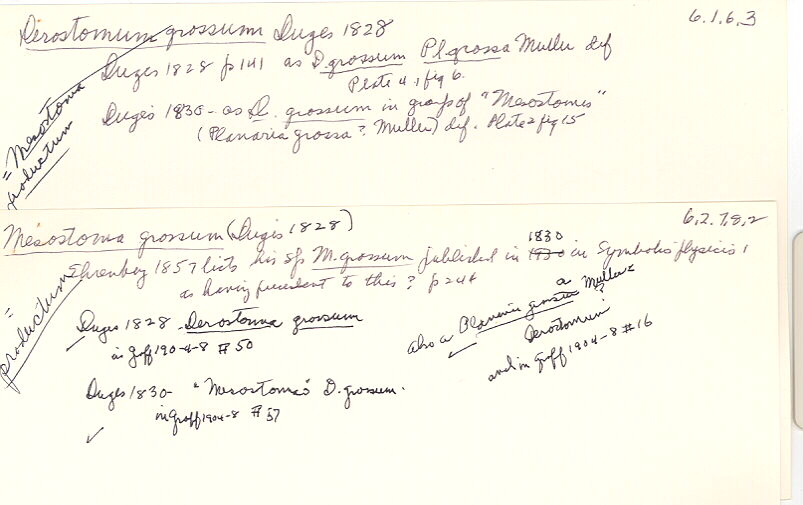 Derostomum grossum Duges 1828
6.1.6.3
Duges 1828 p141 as D. grossum Pl. grossa Muller def
Plate 4, fig 6.
Duges 1830- as D. grossum in group of "Mesostomes"
(Planaria grossa? Muller) def. Plate 2 fig 15
= Mesostoma
productum
Mesostoma grossum (Dugès 1828)
6,2.7,8,2
1830
Ehrenberg 1857 lists his sp M. grossum published in 1930 in Symbolis physicis,
as having precedent to this? p 244
= productum
Duges 1828 Derostoma grossum
in Graff 1904-8 # 50
also a Planaria grossa Muller
a
?
Derostomum
and in Graff 1904-8 #16
Duges 1830- "Mesostomes" D. grossum.
in Graff 1904-8 # 57